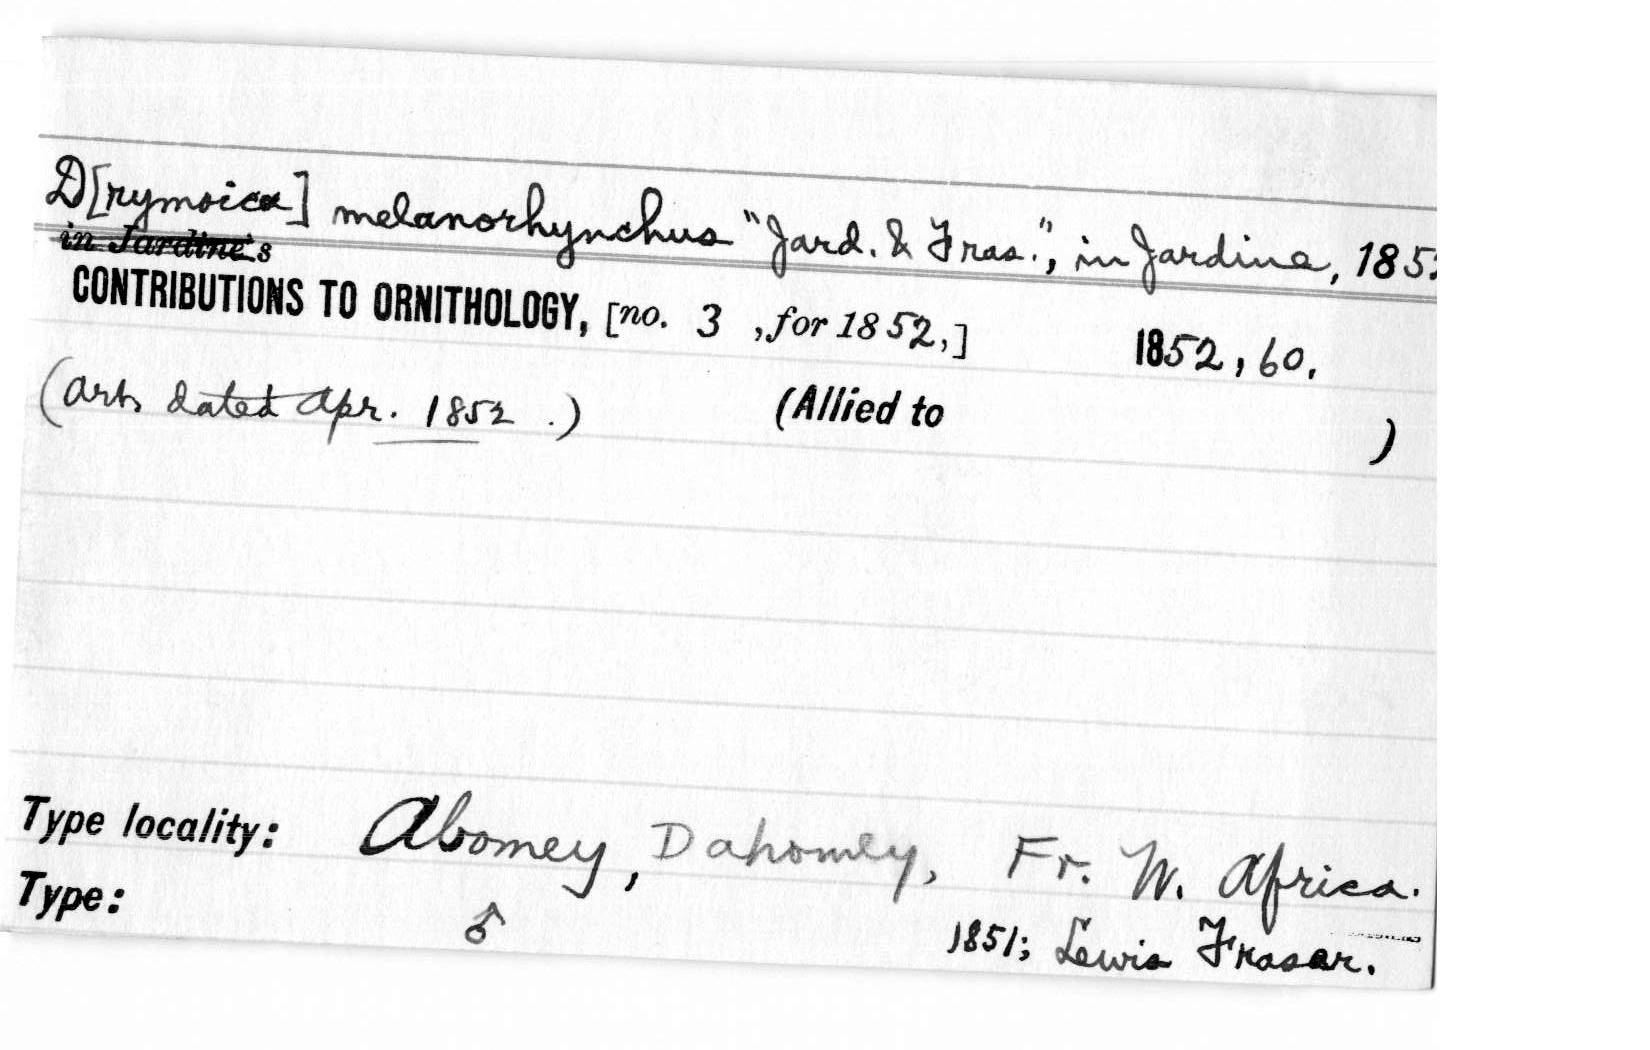 D[rymoica] melanorhynchus "Jard. & Fras.", in Jardine, 185
in Jardine's
CONTRIBUTIONS TO ORNITHOLOGY, [no. 3 , for 1852,] 1852, 60.
(art. dated Apr. 1852 .) (Allied to )
Type locality: Abomey, Dahomey, Fr. W. Africa.
Type: ♂ 1851; Lewis Fraser.